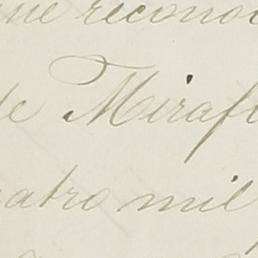 que recono
de Mirafl
uatro mil